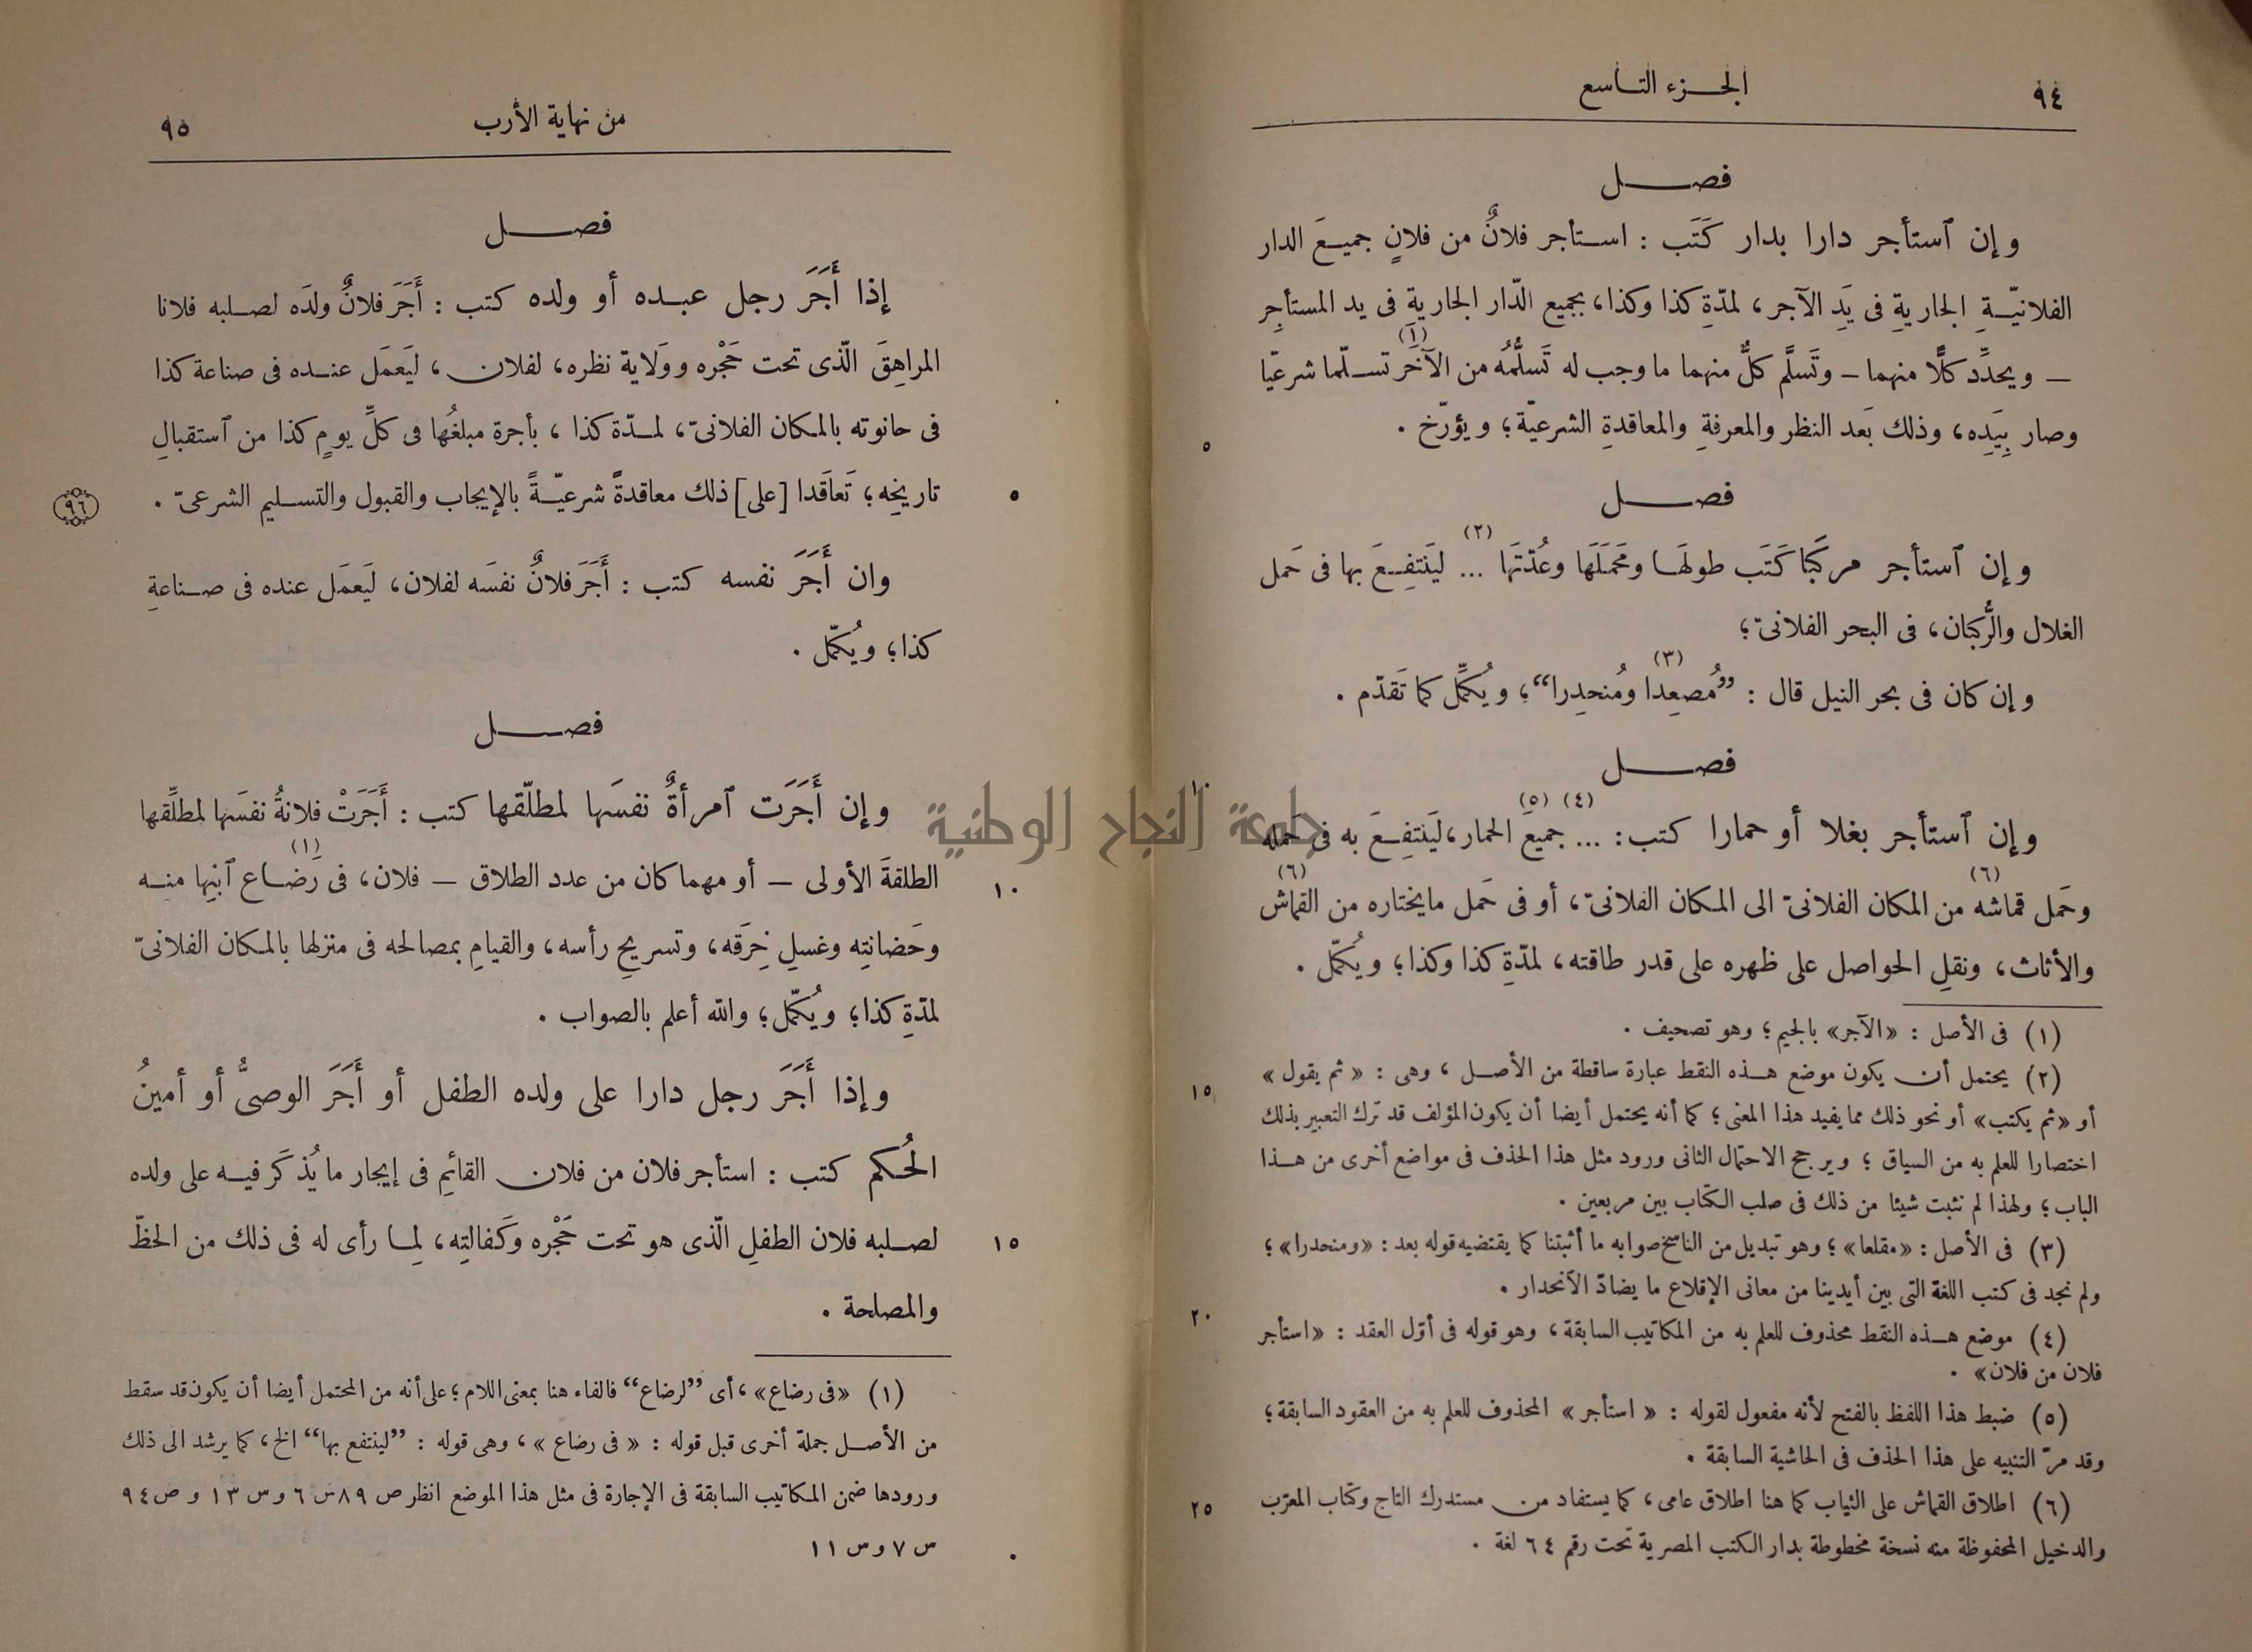 ٩٤
الجزء التاسع
فصل
وإن ٱستأجر دارا بدار كَتَب : استأجر فلانٌ من فلانٍ جميعَ الدار
الفلانيّةِ الجاريةِ فى يَدِ الآجر، لمدّةِ كذا وكذا، بجميع الدّار الجاريةِ فى يد المستأجِر
— ويحدِّد كلًّا منهما — وتَسلَّم كلٌّ منهما ما وجب له تَسلُّمُه من الآخَر (١) تسلّما شرعيّا
وصار بِيَدِه، وذلك بَعد النظر والمعرفةِ والمعاقدةِ الشرعيّة؛ ويؤرّخ .
٥
فصل
وإن ٱستأجر مركَبا كَتَب طولهَا ومَحمَلَها وعُدّتَها (٢) ... ليَنتفِعَ بها فى حَمل
الغلال والرُّكبّان، فى البحر الفلانىّ؛
وإن كان فى بحر النيل قال : ”مُصعِدا (٣) ومُنحدِرا“؛ ويُكمِّل كما تَقدّم .
فصل
١٠
وإن ٱستأجر بغلا أو حمارا كتب : ... (٤) جميعَ (٥) الحمار، ليَنتفِعَ به فى حمله
وحَمل قماشه (٦) من المكان الفلانىّ الى المكان الفلانىّ، أو فى حَمل مايختاره من القماش (٦)
والأثاث، ونقلِ الحواصل على ظهره على قدر طاقته، لمدّةِ كذا وكذا؛ ويُكمّل .
(١) فى الأصل : «الآجر» بالجيم؛ وهو تصحيف .
(٢) يحتمل أن يكون موضع هذه النقط عبارة ساقطة من الأصل ، وهى : «ثم يقول»
١٥
أو «ثم يكتب» أو نحو ذلك مما يفيد هذا المعنى؛ كما أنه يحتمل أيضا أن يكون المؤلف قد ترك التعبير بذلك
اختصارا للعلم به من السياق ؛ ويرجح الاحتمال الثانى ورود مثل هذا الحذف فى مواضع أخرى من هذا
الباب؛ ولهذا لم نثبت شيئا من ذلك فى صلب الكتاب بين مربعين .
(٣) فى الأصل : «مقلعا»؛ وهو تبديل من الناسخ صوابه ما أثبتنا كما يقتضيه قوله بعد : «ومنحدرا»؛
ولم نجد فى كتب اللغة التى بين أيدينا من معانى الإقلاع ما يضادّ الآنحدار .
٢٠
(٤) موضع هذه النقط محذوف للعلم به من المكاتيب السابقة، وهو قوله فى أوّل العقد : «استأجر
فلان من فلان» .
(٥) ضبط هذا اللفظ بالفتح لأنه مفعول لقوله : « استأجر » المحذوف للعلم به من العقود السابقة؛
وقد مرّ التنبيه على هذا الحذف فى الحاشية السابقة .
(٦) اطلاق القماش على الثياب كما هنا اطلاق عامى، كما يستفاد من مستدرك التاج وكتاب المعرّب
٢٥
والدخيل المحفوظة منه نسخة مخطوطة بدار الكتب المصرية تحت رقم ٦٤ لغة .
من نهاية الأرب
٩٥
فصل
إذا أَجَرَ رجل عبده أو ولده كتب : أَجَرَ فلانٌ ولدَه لصلبه فلانا
المراهِقَ الّذى تحت حَجْره ووَلاية نظره، لفلان، ليَعمَل عنده فى صناعة كذا
فى حانوته بالمكان الفلانىّ، لمدّة كذا ، بأجرة مبلغُها فى كلِّ يومٍ كذا من ٱستقبالِ
تاريخِه؛ تَعاقَدا [على] ذلك معاقدةً شرعيّةً بالإيجاب والقبول والتسليم الشرعىّ .
٥
٩٦
وان أَجَرَ نفسه كتب : أَجَرَ فلانٌ نفسَه لفلان، ليَعمَل عنده فى صناعةِ
كذا؛ ويُكمّل .
فصل
وإن أَجَرَت ٱمرأةٌ نفسَها لمطلّقها كتب : أَجَرَتْ فلانةُ نفسَها لمطلِّقها
الطلقةَ الأولى — أو مهما كان من عدد الطلاق — فلان، فى رَضاع (١) ٱبنِها منه
١٠
وحَضانتِه وغسلِ خِرَقه، وتسريحِ رأسه، والقيامِ بمصالحه فى منزلها بالمكان الفلانىّ
لمدّةِ كذا؛ ويُكمّل؛ والله أعلم بالصواب .
وإذا أَجَرَ رجل دارا على ولده الطفل أو أَجَرَ الوصىُّ أو أمينُ
الحُكم كتب : استأجر فلان من فلان القائمِ فى إيجار ما يُذكَر فيه على ولده
لصلبه فلان الطفلِ الّذى هو تحت حَجْره وكَفالتِه، لِما رأى له فى ذلك من الحظّ
١٥
والمصلحة .
(١) «فى رضاع»، أى ”لرضاع“ فالفاء هنا بمعنى اللام؛ على أنه من المحتمل أيضا أن يكون قد سقط
من الأصل جملة أخرى قبل قوله : « فى رضاع »، وهى قوله : ”لينتفع بها“ الخ، كما يرشد الى ذلك
ورودها ضمن المكاتيب السابقة فى الإجارة فى مثل هذا الموضع انظر ص ٨٩ س ٦ و س ١٣ و ص ٩٤
س ٧ و س ١١
جامعة النجاح الوطنية